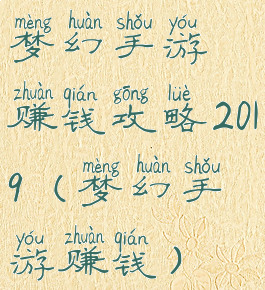 mèng huàn shǒu yóu
梦幻手游
zhuàn qián gōng lüè
赚钱攻略201
mèng huàn shǒu
9（梦幻手
yóu zhuàn qián
游赚钱）